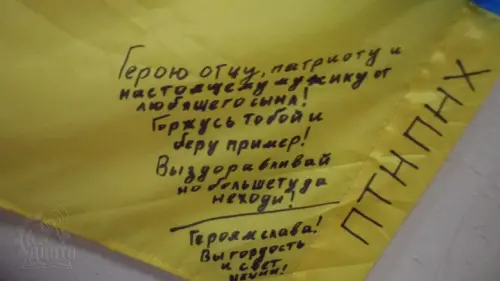 Герою отцу, патриоту и
настоящему мужику от
любящего сына!
Горжусь тобой и
беру пример!
Выздоравливай
но больше туда
не ходи!
Героям слава!
Вы гордость
и свет
ПТНПНХ